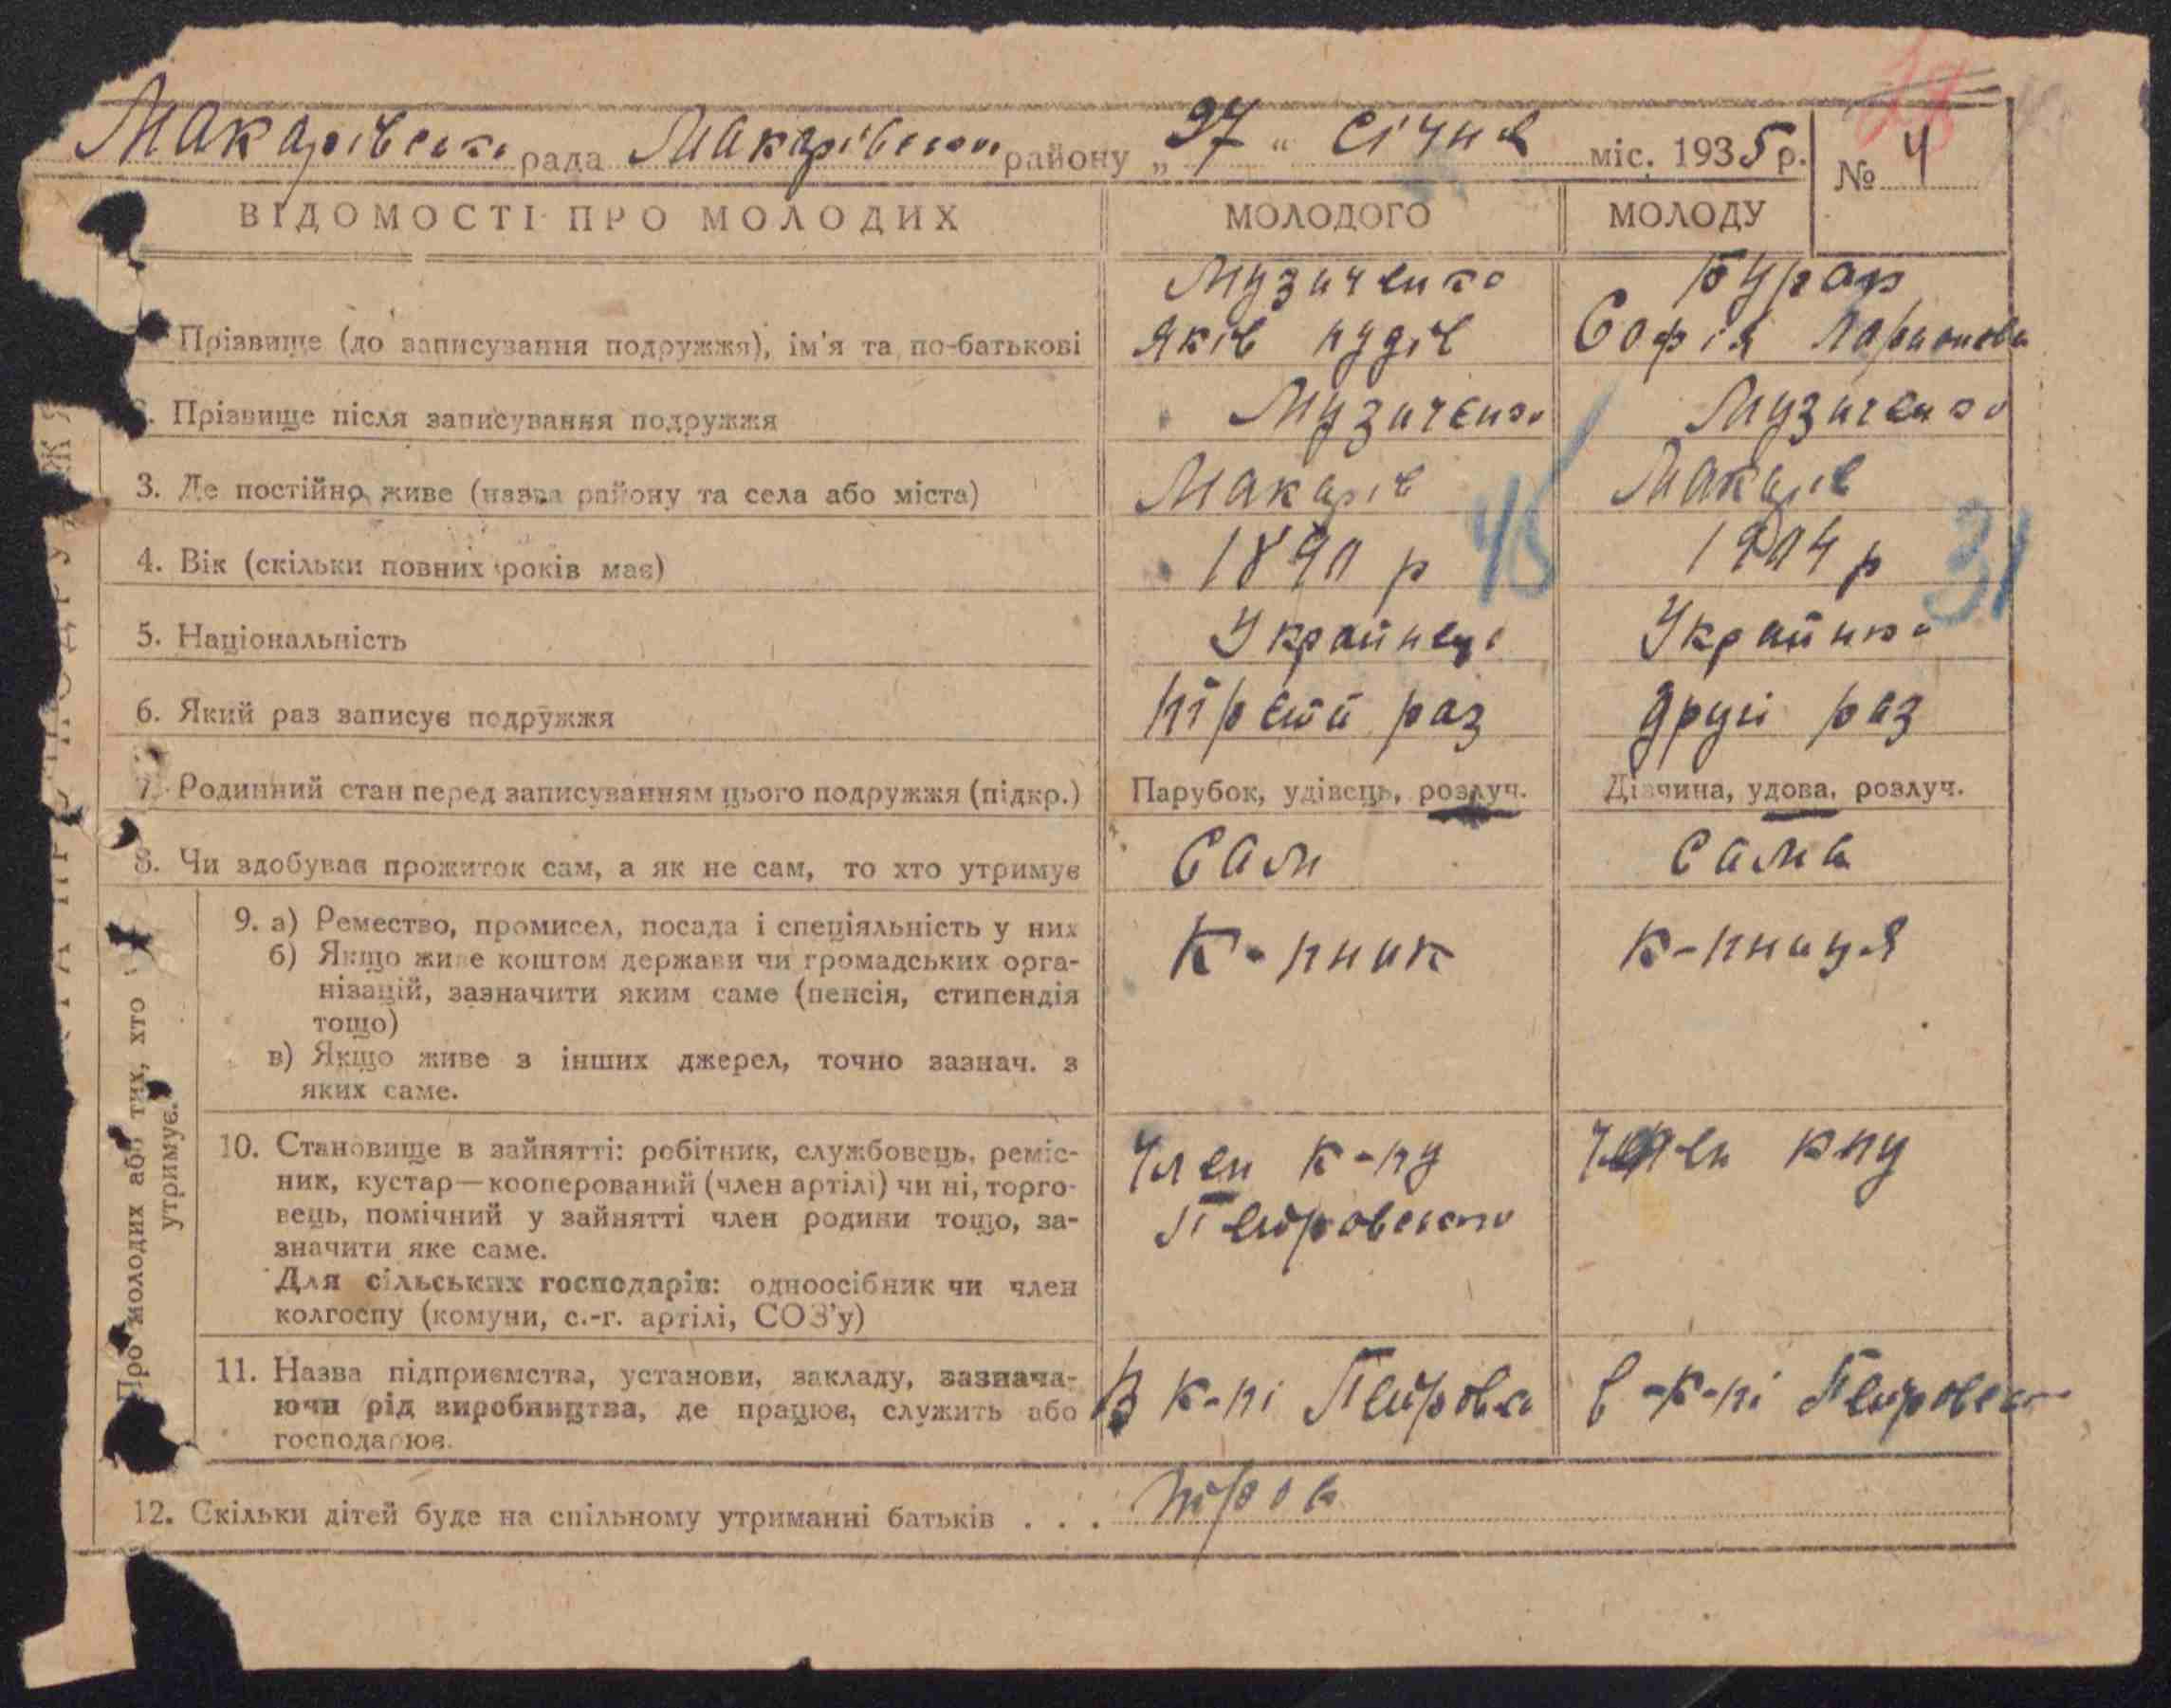 Макарівська рада Макарівського району „27“ січня міс. 1935 р. № 4
ВІДОМОСТІ ПРО МОЛОДИХ МОЛОДОГО МОЛОДУ
Музиченко Бурар
Прізвище (до записування подружжя), ім'я та по-батькові Яків Нудів Софія Ларионова
2. Прізвище після записування подружжя Музиченко Музиченко
3. Де постійно живе (назва району та села або міста) Макарів Макарів
4. Вік (скільки повних років має) 1890 р 45 1904 р 31
5. Національність Українець Українка
6. Який раз записує подружжя третій раз другий раз
7. Родинний стан перед записуванням цього подружжя (підкр.) Парубок, удівець, розлуч. Дівчина, удова, розлуч.
8. Чи здобував прожиток сам, а як не сам, то хто утримує Сам Сама
Про молодих або тих, хто
утримує.
9. а) Ремество, промисел, посада і спеціяльність у них К-пник к-пниця
б) Якщо живе коштом держави чи громадських орга-
нізацій, зазначити яким саме (пенсія, стипендія
тощо)
в) Якщо живе з інших джерел, точно зазнач. з
яких саме.
10. Становище в зайнятті: робітник, службовець, реміс- Член к-пу член кпу
ник, кустар—кооперований (член артілі) чи ні, торго-
вець, помічний у зайнятті член родини тощо, за- Петровського
значити яке саме.
Для сільських господарів: одноосібник чи член
колгоспу (комуни, с.-г. артілі, СОЗ'у)
11. Назва підприємства, установи, закладу, зазнача-
ючи рід виробництва, де працює, служить або В к-пі Петровск в к-пі Петровск
господарює.
12. Скільки дітей буде на спільному утриманні батьків . . . троє